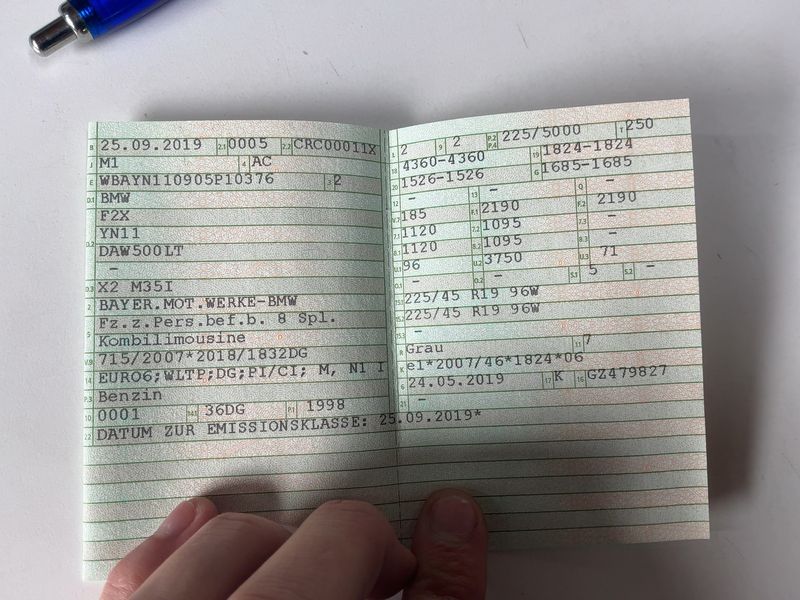 B 25.09.2019 2.1 0005 2.2 CRC00011X
J M1 4 AC
E WBAYN110905P10376 3 2
D.1 BMW
F2X
D.2 YN11
DAW500LT
–
D.3 X2 M35I
2 BAYER.MOT.WERKE-BMW
Fz.z.Pers.bef.b. 8 Spl.
5 Kombilimousine
V.9 715/2007*2018/1832DG
14 EURO6;WLTP;DG;PI/CI; M, N1 I
P.3 Benzin
10 0001 14.1 36DG P.1 1998
22 DATUM ZUR EMISSIONSKLASSE: 25.09.2019*
L 2 9 2 P.2 P.4 225/5000 T 250
18 4360-4360 19 1824-1824
20 1526-1526 G 1685-1685
12 – 13 – Q –
V.7 185 F.1 2190 F.2 2190
7.1 1120 7.2 1095 7.3 –
8.1 1120 8.2 1095 8.3 –
U.1 96 U.2 3750 U.3 71
O.1 – O.2 – S.1 5 S.2 –
15.1 225/45 R19 96W
225/45 R19 96W
–
R Grau 11 7
K e1*2007/46*1824*06
6 24.05.2019 17 K 16 GZ479827
21 –